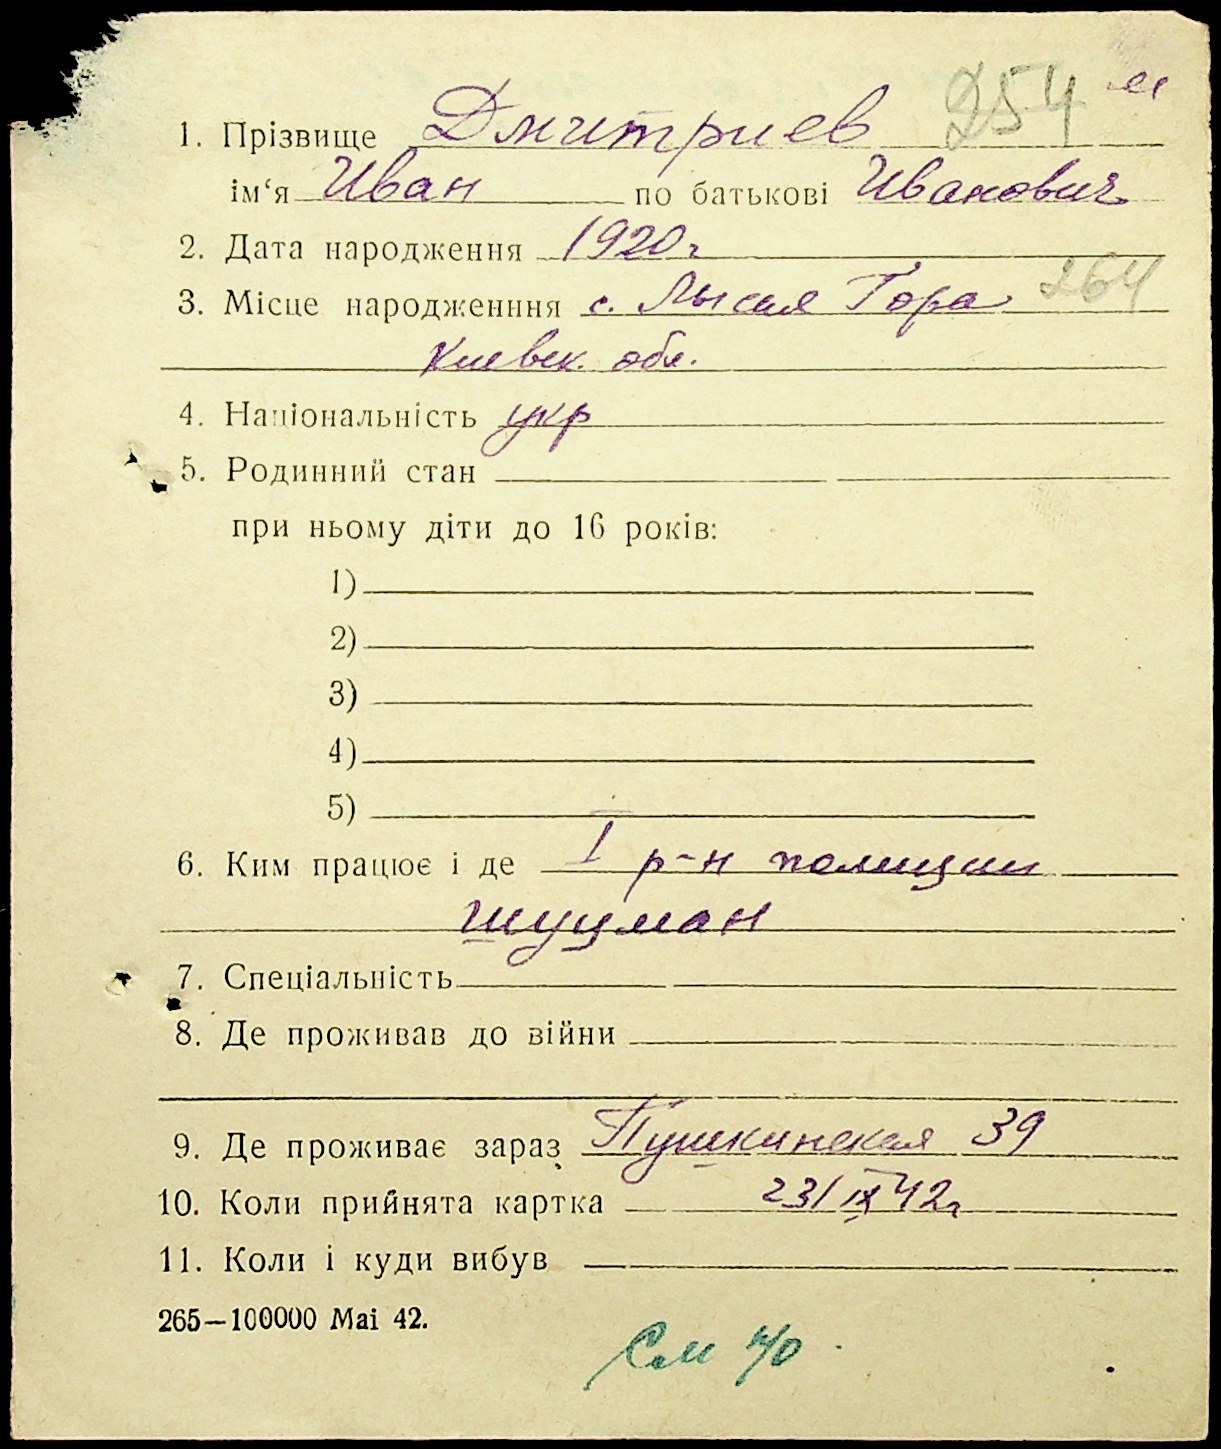 254 м
1. Прізвище Дмитриев
ім‘я Иван по батькові Иванович
2. Дата народження 1920 г
3. Місце народженння с. Лысая Гора 264
Киевск. обл.
4. Національність укр
5. Родинний стан
при ньому діти до 16 років:
1)
2)
3)
4)
5)
6. Ким працює і де I р-н полиции
шуцман
7. Спеціальність
8. Де проживав до війни
9. Де проживає зараз Пушкинская 39
10. Коли прийнята картка 23/IX 42 г
11. Коли і куди вибув
265—100000 Mai 42.
См